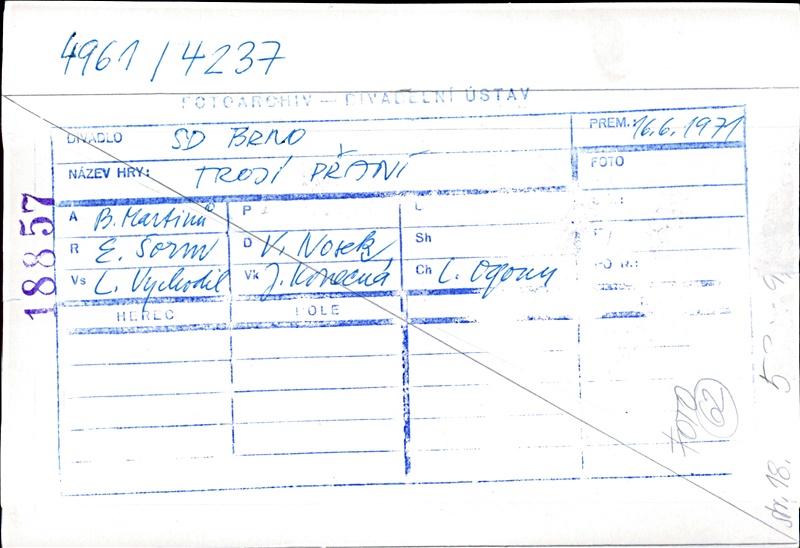 4961/4237
FOTOARCHIV — DIVADELNÍ ÚSTAV
DIVADLO SD BRNO
PREM.: 16.6.1971
NÁZEV HRY: TROJÍ PŘÁNÍ
FOTO
A B. Martinů
P
R E. Sorm
D V. Nosek
Sh
Vs L. Vychodil
Vk J. Konečná
Ch L. Ogoun
HEREC
ROLE
18857
FOTO
62
str. 18.